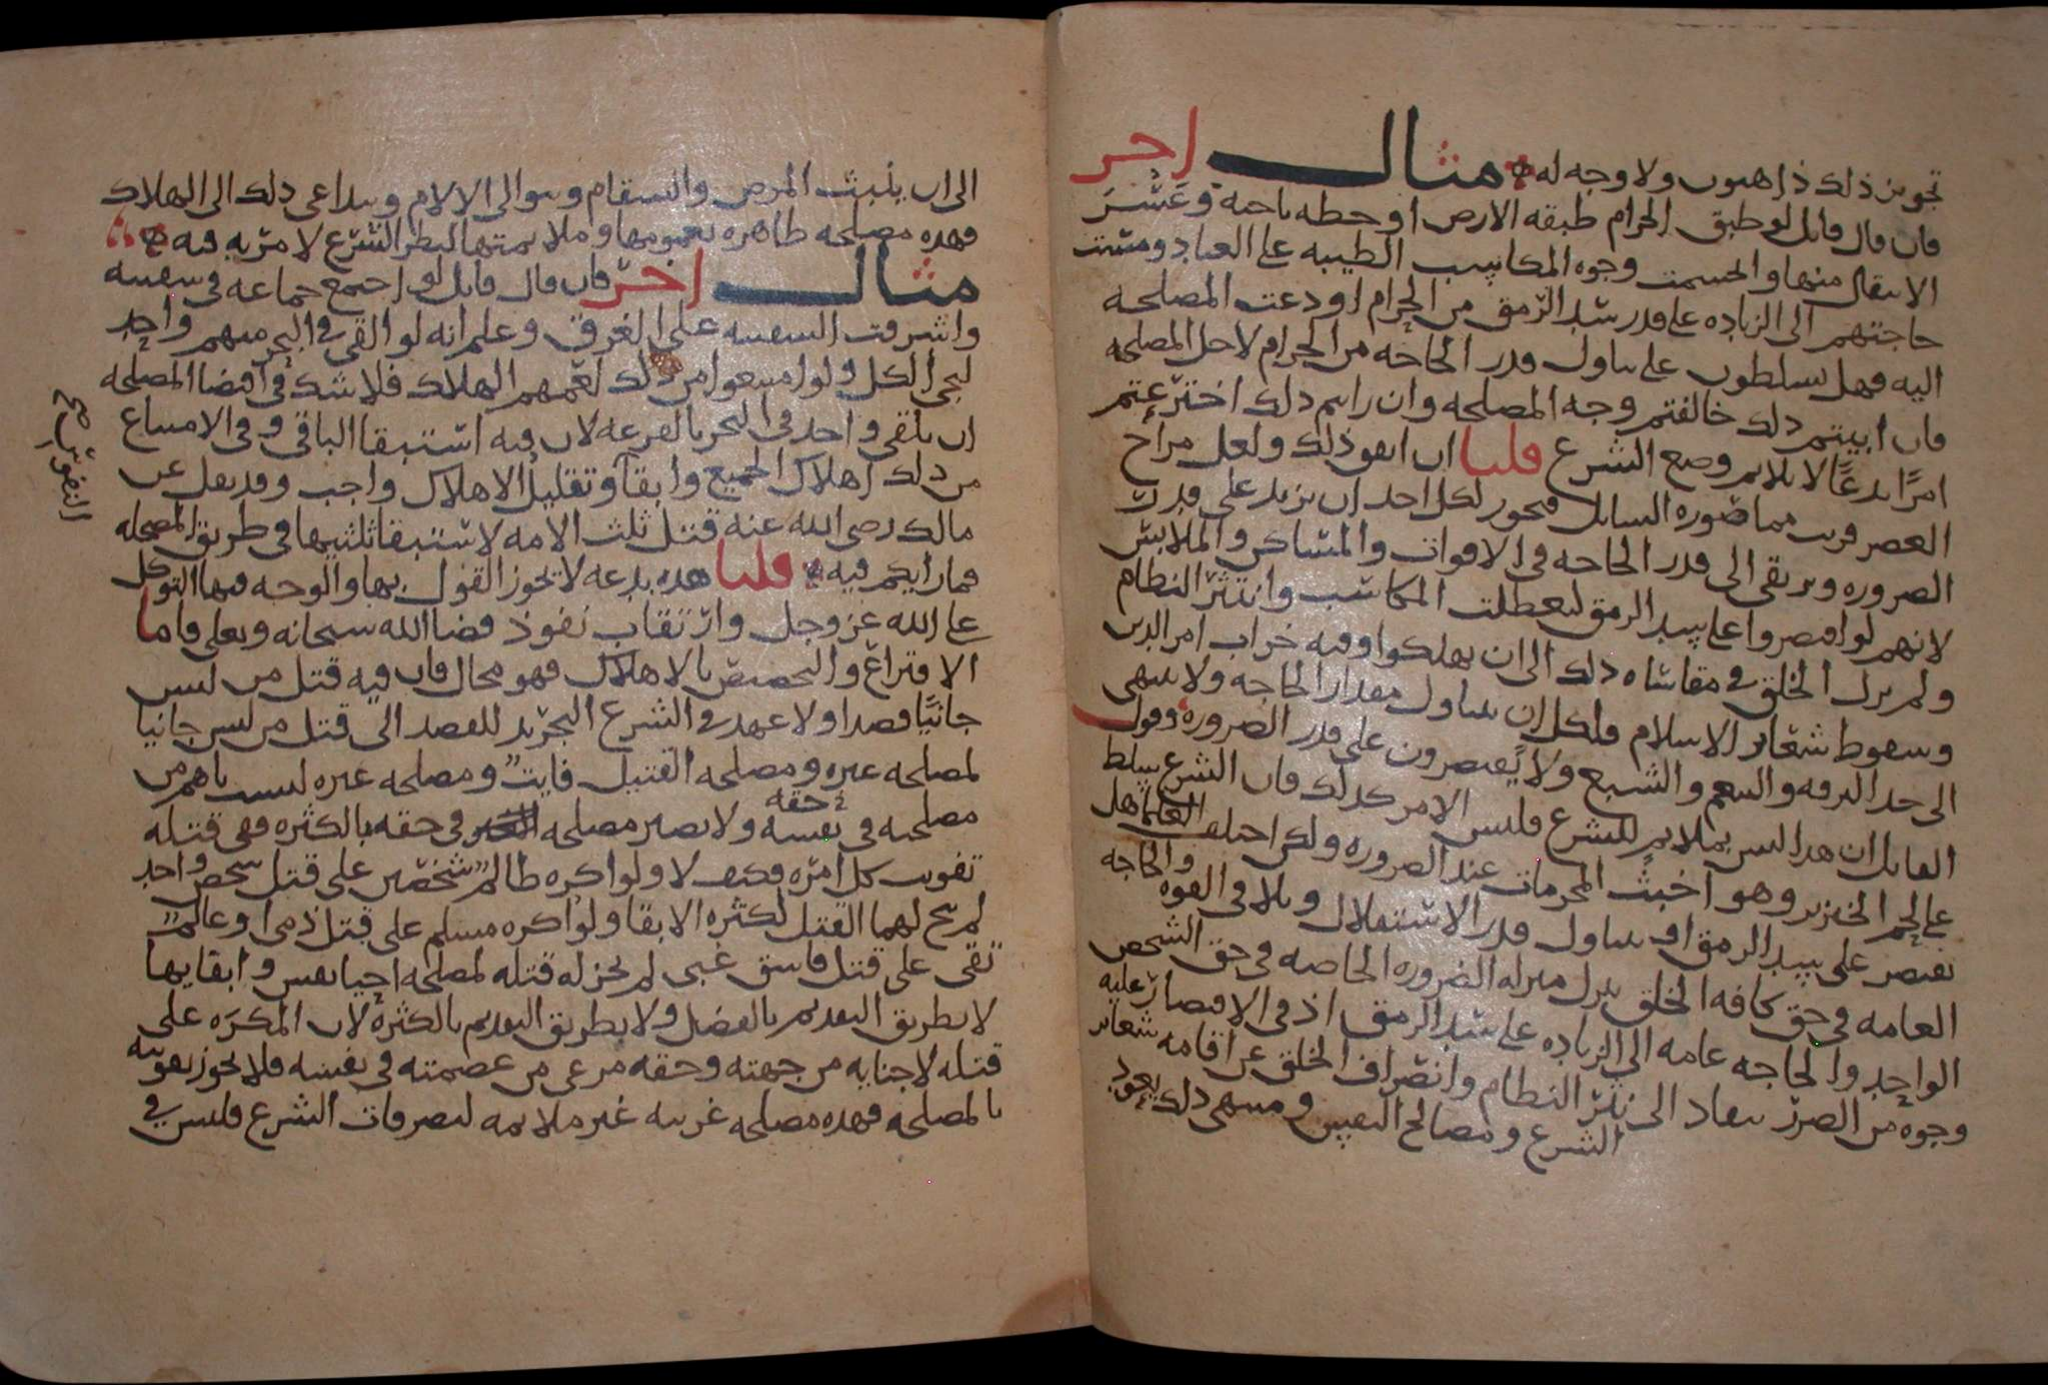 تجويز ذلك ذاهبون ولا وجه له مثال اخر
فان قال قايل لو طبق الحرام طبقه الارض او خطه ناحيه وعسر
الانتقال منها وانحسمت وجوه المكاسب الطيبه على العباد ومست
حاجتهم الى الزياده على قدر سد الرمق من الحرام او دعت المصلحه
اليه فهل يسلطون على تناول قدر الحاجه من الحرام لاجل المصلحه
فان ابيتم ذلك خالفتم وجه المصلحه وان رايتم ذلك اخترعتم
امرًا بدعًا لا يلايم وضع الشرع قلنا ان اتفق ذلك ولعل مزاج
العصر قريب مما صوره السايل فيجوز لكل احد ان يزيد على قدر
الضروره ويرتقى الى قدر الحاجه فى الاقوات والمساكن والملابس
لانهم لو اقتصروا على سد الرمق لتعطلت المكاسب وانتثر النظام
ولم يزل الخلق فى مقاساه ذلك الى ان يهلكوا وفيه خراب امر الدين
وسقوط شعاير الاسلام فلكل ان يتناول مقدار الحاجه ولا ينتهى
الى حد الترفه والتنعم والشبع ولا يقتصرون على قدر الضروره وقول
القايل ان هذا ليس بملايم للشرع فليس الامر كذلك فان الشرع سلط
على لحم الخنزير وهو اخبث المحرمات عند الضروره ولكن اختلف العلما هل
يقتصر على سد الرمق او يتناول قدر الاستقلال وتلافى القوه والحاجه
العامه فى حق كافه الخلق تنزل منزله الضروره الخاصه فى حق الشخص
الواحد والحاجه عامه الى الزياده على سد الرمق اذ فى الاقتصار عليه
وجوه من الضرر تتقاد الى نثر النظام وانصراف الخلق عن اقامه شعاير
الشرع ومصالح النفس ومنتهى ذلك يعود
الى ان ينبث المرض والسقام وتتوالى الالام ويتداعى ذلك الى الهلاك
فهذه مصلحه ظاهره بعمومها وملايمتها لنظر الشرع لا مريه فيه
مثال اخر فان قال قايل لو اجتمع جماعه فى سفينه
واشرفت السفينه على الغرق وعلم انه لو القى فى البحر منهم واحد
لنجى الكل ولو امتنعوا من ذلك لعمهم الهلاك فلا شك فى اقتضا المصلحه
ان يلقى واحد فى البحر بالقرعه لان فيه استبقا الباقى وفى الامتناع
من ذلك اهلاك الجميع وابقآ وتقليل الاهلاك واجب وقد نقل عن
مالك رضى الله عنه قتل ثلث الامه لاستبقا ثلثيها فى طريق المصلحه
فما رايكم فيه قلنا هذه بدعه لا يجوز القول بها والوجه فيها التوكل
على الله عز وجل وارتقاب نفوذ قضا الله سبحانه وتعلى فاما
الاقتراع والتخصيص بالاهلاك فهو محال فان فيه قتل من ليس
جانيًا قصدا ولا عهد فى الشرع التجريد للقصد الى قتل من ليس جانيا
لمصلحه غيره ومصلحه القتيل فايت ومصلحه غيره ليست باهم من
مصلحته فى نفسه حقه ولا تصير مصلحه فى حقه بالكثره فهى قتله
تفويت كل امره فكيف لا ولو اكره ظالم شخصين على قتل شخص واحد
لم يبح لهما القتل لكثره الابقا ولو اكره مسلم على قتل ذمى او عالم
تقى على قتل فاسق غبى لم يجز له قتله لمصلحه احيا نفس وابقايها
لا بطريق التقديم بالفضل ولا بطريق التقديم بالكثره لان المكره على
قتله لا جنايه من جهته وحقه مرعى من عصمته فى نفسه فلا يجوز تفويته
بالمصلحه فهذه مصلحه غريبه غير ملايمه لتصرفات الشرع فليس فى
التفويت صح